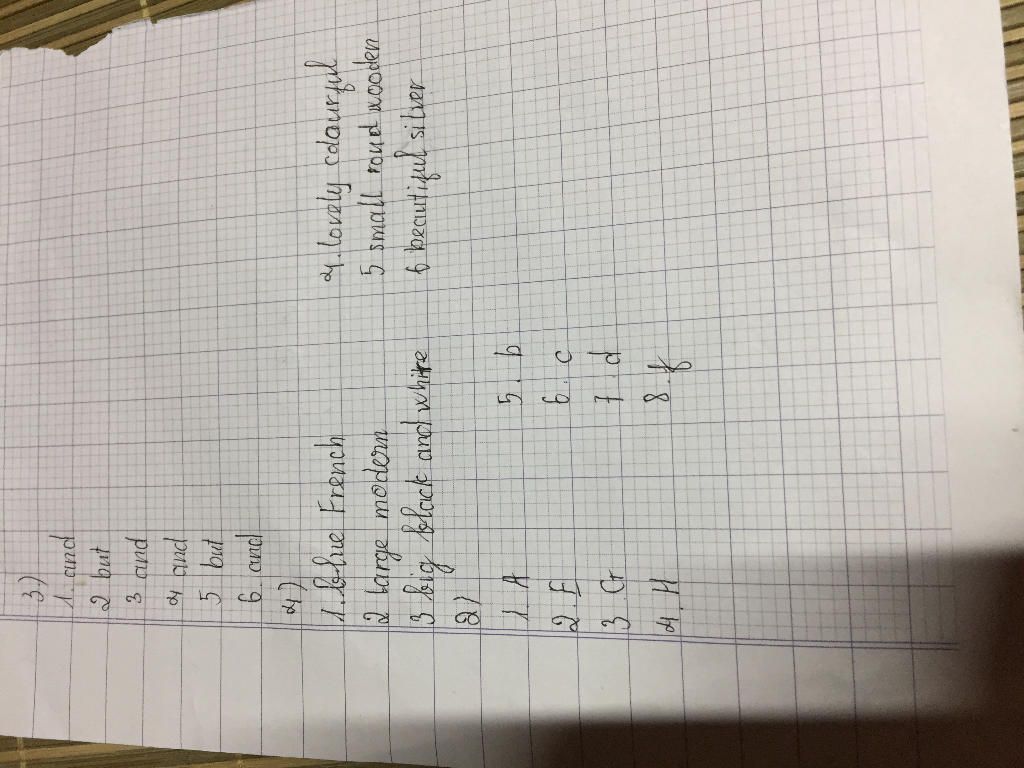 3.)
1. and
2 but
3 and
4 and
5 but
6. and
4)
1. blue French
2 large modern
3 big black and white
4. lovely colourful
5 small round wooden
6 beautiful silver
2)
1. A
2. E
3. G
4. H
5. b
6. c
7. d
8. f